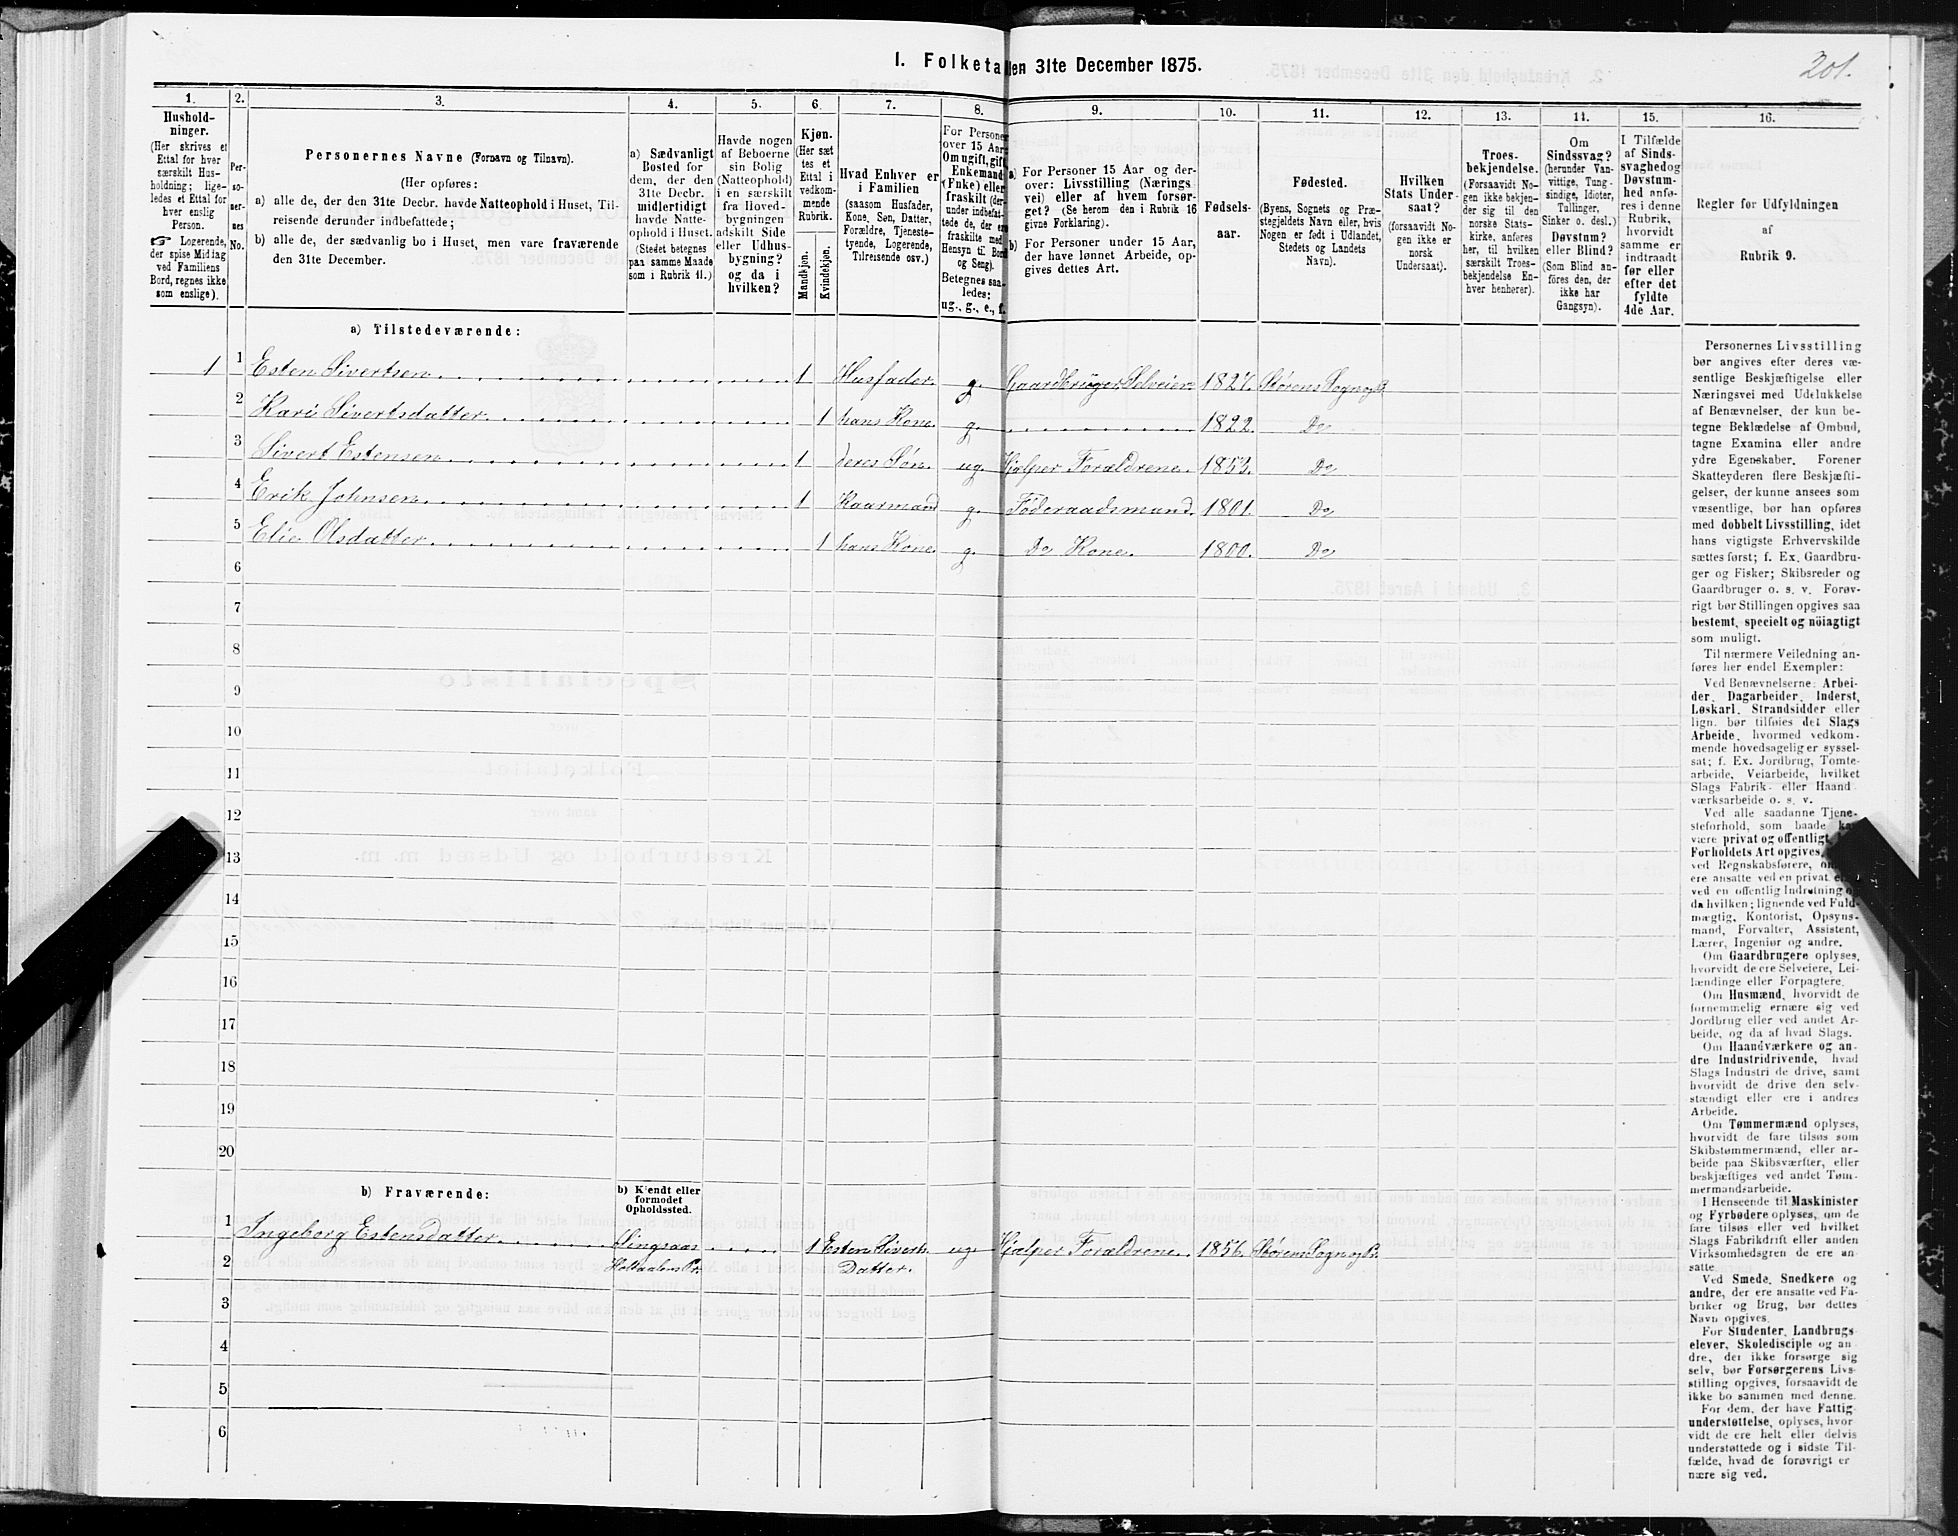 201.
I. Folketallen 31te December 1875.
1. 2. 3. 4. 5. 6. 7. 8. 9. 10. 11. 12. 13. 14. 15. 16.
Hushold-
ninger.
(Her skrives et
Ettal for hver
særskilt Hus-
holdning; lige-
ledes et Ettal for
hver enslig
Person.
☞ Logerende,
der spise Middag
ved Familiens
Bord, regnes ikke
som enslige).
Per-
so-
ner-
nes
No.
Personernes Navne (Fornavn og Tilnavn).
(Her opføres:
a) alle de, der den 31te Decbr. havde Natteophold i Huset, Til-
reisende derunder indbefattede;
b) alle de, der sædvanlig bo i Huset, men vare fraværende
den 31te December.
a) Sædvanligt
Bosted for
dem, der den
31te Decbr.
midlertidigt
havde Natte-
ophold i Huset.
(Stedet betegnes
paa samme Maade
som i Rubrik 11.)
Havde nogen
af Beboerne
sin Bolig
(Natteophold)
i en særskilt
fra Hoved-
bygningen
adskilt Side
eller Udhus-
bygning?
og da i
hvilken?
Kjøn.
(Her sæt
tes et
Ettal i
vedkom-
mende
Rubrik.
Mandkjøn.
Kvindekjøn.
Hvad Enhver er
i Familien
(saasom Husfader,
Kone, Søn, Datter,
Forældre, Tjeneste-
tyende, Logerende,
Tilreisende osv.)
For Personer
over 15 Aar:
Om ugift, gift,
Enkemand
(Enke) eller
fraskilt (der-
under indbefat-
tede de, der ere
fraskilte med
Hensyn til Bord
og Seng).
Betegnes saa-
ledes:
ug., g., e., f.
a) For Personer 15 Aar og der-
over: Livsstilling (Nærings
vei) eller af hvem forsør-
get? (Se herom den i Rubrik 16
givne Forklaring).
b) For Personer under 15 Aar,
der have lønnet Arbeide, op-
gives dettes Art.
Fødsels-
aar.
Fødested.
(Byens, Sognets og Præ-
stegjeldets Navn eller, hvis
Nogen er født i Udlandet,
Stedets og Landets
Navn).
Hvilken
Stats Under-
saat?
(forsaavidt No-
gen ikke er
norsk
Undersaat).
Troes-
bekjendelse.
(Forsaavidt No-
gen ikke bekjen-
der sig til den
norske Stats-
kirke, anføres
her, til hvilken
særskilt Troes-
bekjendelse En-
hver henhører).
Om
Sindssvag?
(herunder Van-
vittige, Tung-
sindige, Idioter,
Tullinger,
Sinker o. desl.)
Døvstum?
eller Blind?
(Som Blind an-
føres den, der
ikke har
Gangsyn).
I Tilfælde
af Sinds-
svaghedog
Døvstum-
hed anfø-
res i denne
Rubrik,
hvorvidt
samme er
indtraadt
før eller
efter det
fyldte
4de Aar.
Regler for Udfyldningen
af
Rubrik 9.
a) Tilstedeværende:
1 1 Esten Sivertsen 1 Husfader. g. Gaardbruger, Selveier 1827. Størens Sogn og P.
2 Kari Sivertsdatter 1 hans Kone. g. 1822. Do
3 Sivert Estensen 1 deres Søn. ug. Hjælper Forældrene. 1853. Do
4 Erik Johnsen 1 Kaarmand g. Føderaadsmand. 1801. Do
5 Elie Olsdatter 1 hans Kone. g. Do Kone. 1800. Do
6
7
8
9
10
11
12
13
14
15
16
17
18
19
20
b) Fraværende:
b) Kjendt eller
formodet
Opholdssted.
1 Ingeborg Estensdatter Singsaas 1 Esten Siverts. ug. Hjælper Forældrene. 1856. Størens Sogn og Pr.
2 Holtaalens Pr. Datter.
3
4
5
6
Personernes Livsstilling
bør angives efter deres væ-
sentlige Beskjæftigelse eller
Næringsvei med Udelukkelse
af Benævnelser, der kun be-
tegne Beklædelse af Ombud,
tagne Examina eller andre
ydre Egenskaber. Forener
Skatteyderen flere Beskjæfti-
gelser, der kunne ansees som
væsentlige, bør han opføres
med dobbelt Livsstilling, idet
hans vigtigste Erhvervskilde
sættes først; f. Ex. Gaardbru-
ger og Fisker; Skibsreder og
Gaardbruger o. s. v. Forøv-
rigt bør Stillingen opgives saa
bestemt, specielt og nöiagtigt
som muligt.
Til nærmere Veiledning an-
føres her endel Exempler:
Ved Benævnelserne: Arbei-
der, Dagarbeider, Inderst,
Løskarl, Strandsidder eller
lign. bør tilføies det Slags
Arbeide, hvormed vedkom-
mende hovedsagelig er syssel-
sat; f. Ex. Jordbrug, Tomte-
arbeide, Veiarbeide, hvilket
Slags Fabrik- eller Haand
værksarbeide o. s. v.
Ved alle saadanne Tjene-
steforhold, som baade kan
være privat og offentligt,
Forholdets Art opgives,
ved Regnskabsførere, om
ere ansatte ved en privat
ved en offentlig Indretning og
da hvilken; lignende ved Fuld-
mægtig, Kontorist, Opsyns-
mand, Forvalter, Assistent,
Lærer, Ingeniør og andre.
Om Gaardbrugere oplyses,
hvorvidt de ere Selveiere, Lei-
lændinge eller Forpagtere.
Om Husmænd, hvorvidt de
fornemmelig ernære sig ved
Jordbrug eller ved andet Ar-
beide, og da af hvad Slags.
Om Haandværkere og an-
dre Industridrivende, hvad
Slags Industri de drive, samt
hvorvidt de drive den selv-
stændigt eller ere i andres
Arbeide.
Om Tømmermænd oplyses,
hvorvidt de fare tilsøs som
Skibstømmermænd, eller ar-
beide paa Skibsværfter, eller
beskjæftiges ved andet Tøm-
mermandsarbeide.
I Henseende til Maskinister
og Fyrbødere oplyses, om de
fare tilsøs eller ved hvilket
Slags Fabrikdrift eller anden
Virksomhedsgren de ere an-
satte.
Ved Smede, Snedkere og
andre, der ere ansatte ved Fa-
briker og Brug, bør dettes
Navn opgives.
For Studenter, Landbrugs-
elever, Skoledisciple og an-
dre, der ikke forsørge sig
selv, bør Forsørgerens Livs-
stilling opgives, forsaavidt de
ikke bo sammen med denne.
For dem, der have Fattig-
understøttelse, oplyses, hvor
vidt de ere helt eller delvis
understøttede og i sidste Til-
fælde, hvad de forøvrigt er
nære sig ved.